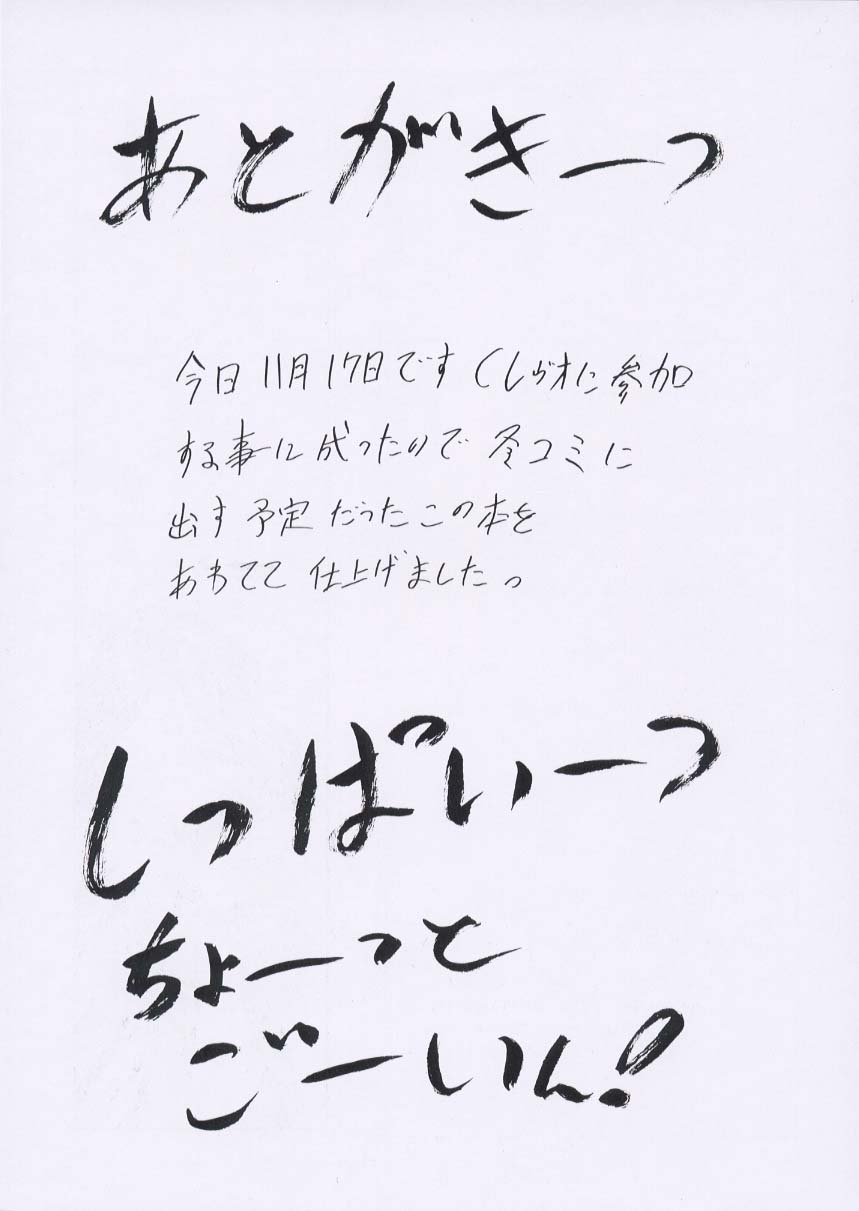 あとがきーっ
今日11月17日です くしゲオに参加
する事に成ったので 冬コミに
出す予定だったこの本を
あわてて 仕上げましたっ
しっぱいーっ
ちょーっと
ごーいん!